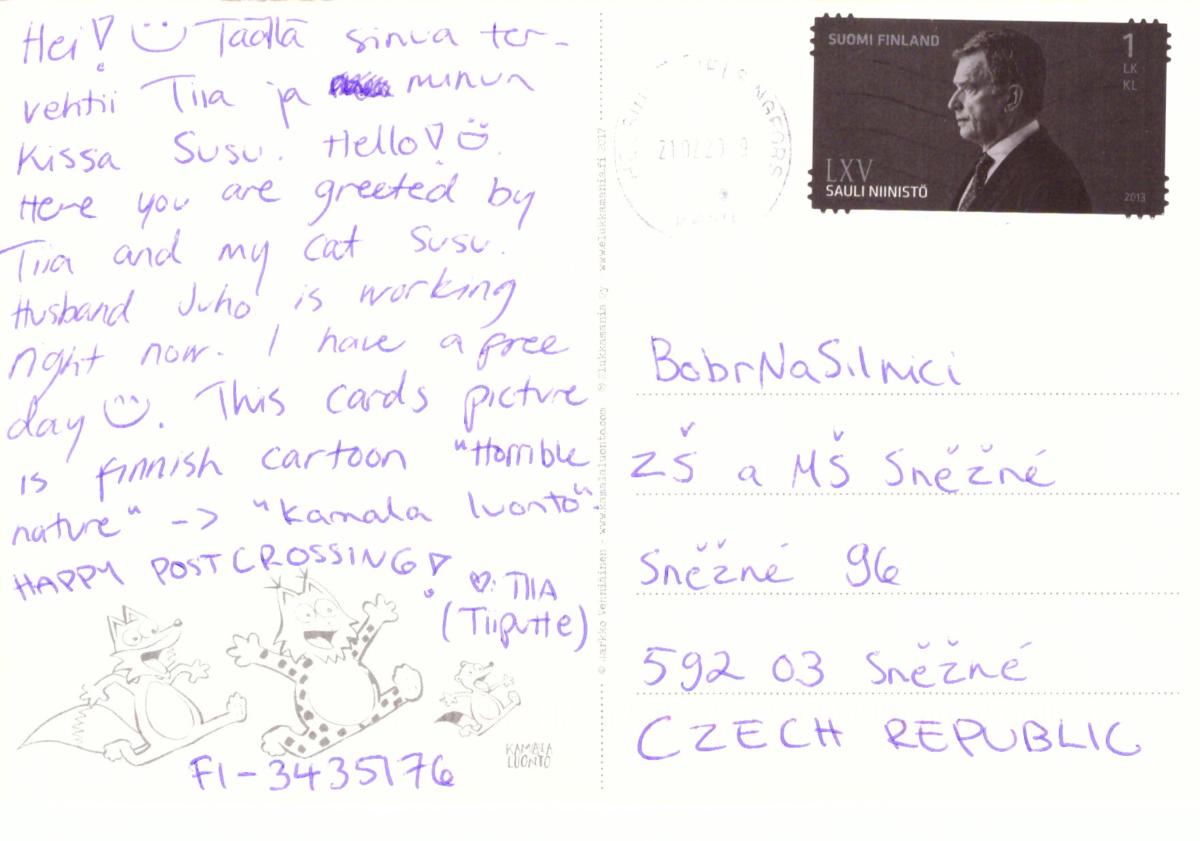 Hei! Täällä sinua ter-
vehtii Tiia ja minun
kissa Susu. Hello!
Here you are greeted by
Tiia and my cat Susu.
Husband Juho is working
right now. I have a free
day. This cards picture
is finnish cartoon "Horrible
nature" -> "Kamala luonto".
HAPPY POSTCROSSING!
♡: TIIA
(Tiiputte)
KAMALA
LUONTO
FI-3435176
© Jarkko Vehniäinen - www.kamalaluonto.com © Elukkamania Oy www.elukkamania.fi 2017
HELSINGFORS
SUOMI FINLAND
1
LK
KL
LXV
SAULI NIINISTÖ
2013
BobrNaSilnici
ZŠ a MŠ Sněžné
Sněžné 96
592 03 Sněžné
CZECH REPUBLIC